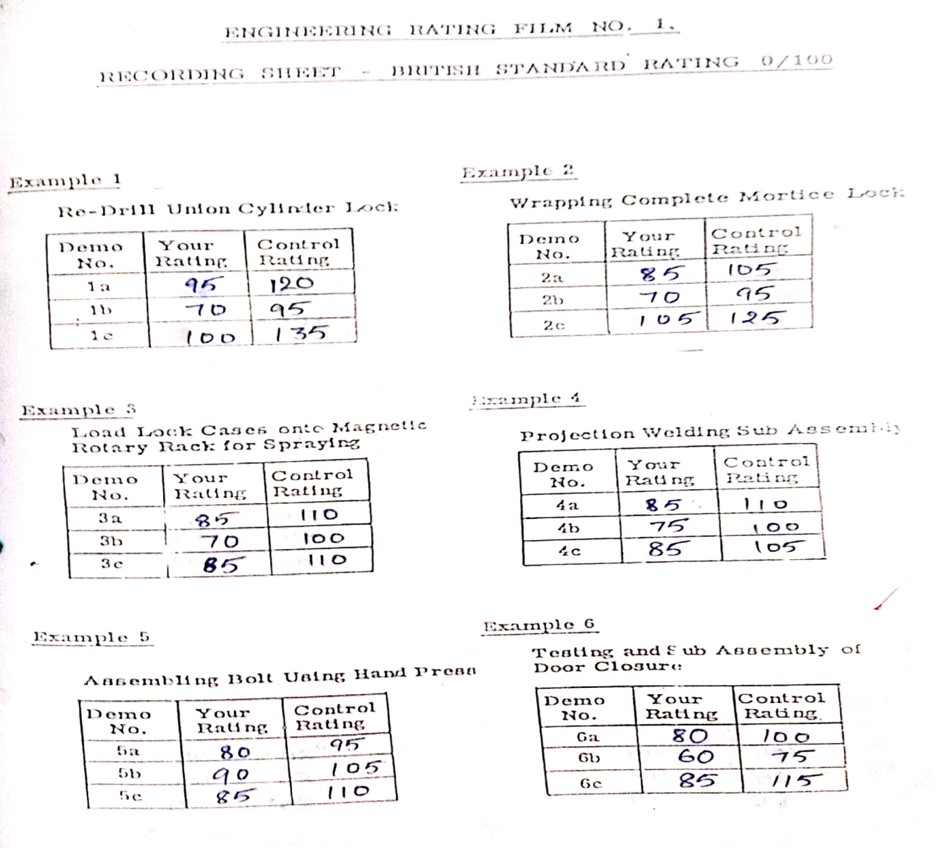 ENGINEERING RATING FILM NO. 1.
RECORDING SHEET - BRITISH STANDARD RATING 0/100
Example 1
Re-Drill Union Cylinder Lock
Demo No. Your Rating Control Rating
1a 95 120
1b 70 95
1c 100 135
Example 2
Wrapping Complete Mortice Lock
Demo No. Your Rating Control Rating
2a 85 105
2b 70 95
2c 105 125
Example 3
Load Lock Cases onto Magnetic
Rotary Rack for Spraying
Demo No. Your Rating Control Rating
3a 85 110
3b 70 100
3c 85 110
Example 4
Projection Welding Sub Assembly
Demo No. Your Rating Control Rating
4a 85 110
4b 75 100
4c 85 105
Example 5
Assembling Bolt Using Hand Press
Demo No. Your Rating Control Rating
5a 80 95
5b 90 105
5c 85 110
Example 6
Testing and Sub Assembly of
Door Closure
Demo No. Your Rating Control Rating.
6a 80 100
6b 60 75
6c 85 115